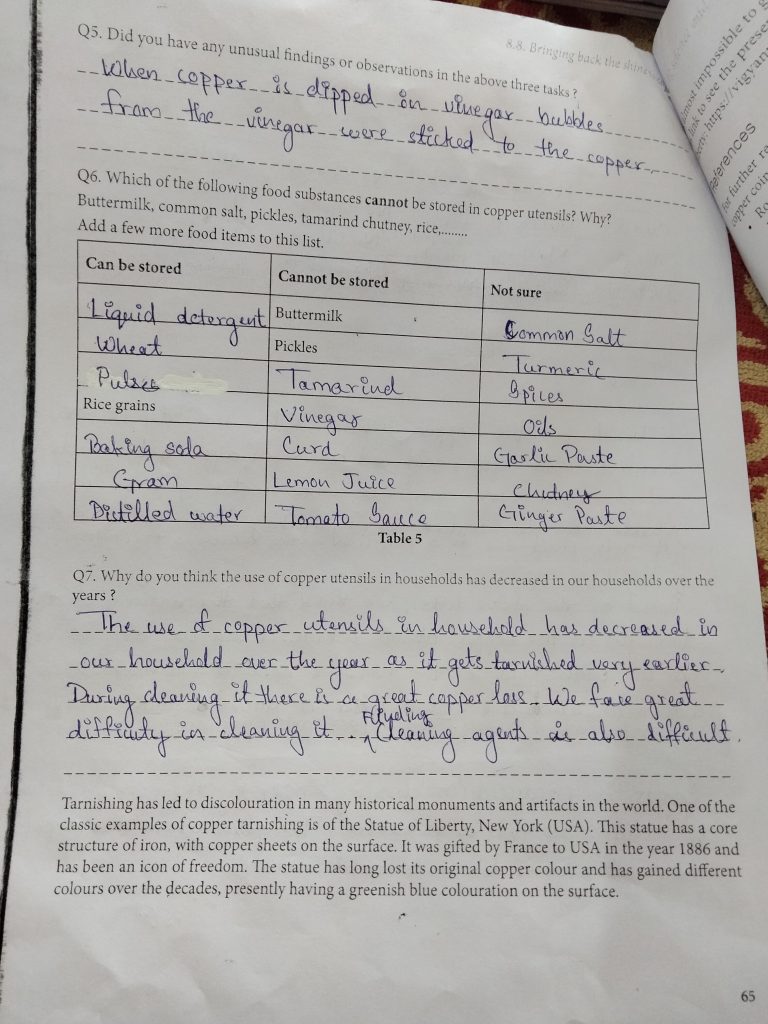 8.8. Bringing back the shine
Q5. Did you have any unusual findings or observations in the above three tasks?
When copper is dipped in vinegar bubbles
from the vinegar were sticked to the copper.
Q6. Which of the following food substances cannot be stored in copper utensils? Why?
Buttermilk, common salt, pickles, tamarind chutney, rice,........
Add a few more food items to this list.
Can be stored Cannot be stored Not sure
Liquid detergent Buttermilk Common Salt
Wheat Pickles Turmeric
Pulses Tamarind Spices
Rice grains Vinegar Oils
Baking soda Curd Garlic Paste
Gram Lemon Juice Chutney
Distilled water Tomato Sauce Ginger Paste
Table 5
Q7. Why do you think the use of copper utensils in households has decreased in our households over the
years ?
The use of copper utensils in household has decreased in
our household over the year as it gets tarnished very earlier.
During cleaning it there is a great copper loss. We face great
difficulty in cleaning it. Finding cleaning agents is also difficult.
Tarnishing has led to discolouration in many historical monuments and artifacts in the world. One of the
classic examples of copper tarnishing is of the Statue of Liberty, New York (USA). This statue has a core
structure of iron, with copper sheets on the surface. It was gifted by France to USA in the year 1886 and
has been an icon of freedom. The statue has long lost its original copper colour and has gained different
colours over the decades, presently having a greenish blue colouration on the surface.
65
most impossible to
link to see the
https://vigyan
References
for further
copper coin